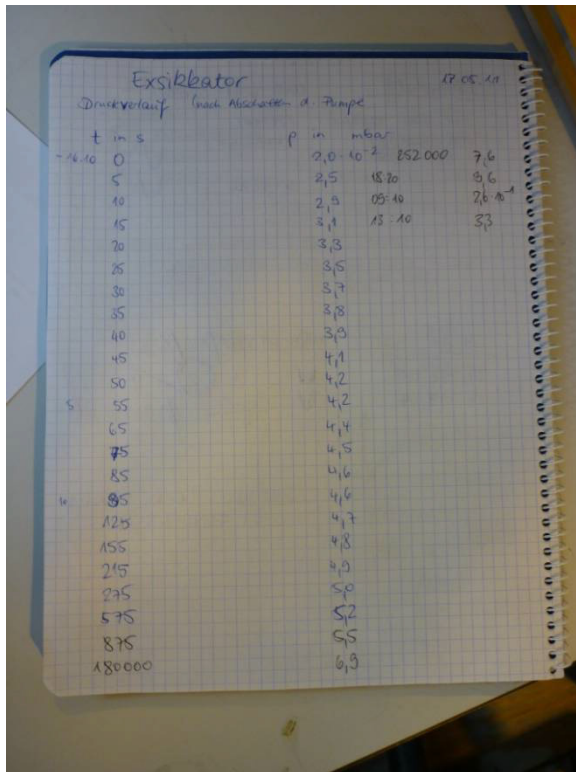 Exsikkator 17.05.11
Druckverlauf (nach Abschalten d. Pumpe
t in s p in mbar
~16.10 0 2,0·10⁻² 252.000 7,6
5 2,5 18:20 9,6
10 2,9 09:10 2,6·10⁻¹
15 3,1 13:10 3,3
20 3,3
25 3,5
30 3,7
35 3,8
40 3,9
45 4,1
50 4,2
5 55 4,2
65 4,4
75 4,5
85 4,6
10 95 4,6
125 4,7
155 4,8
215 4,9
275 5,0
575 5,2
875 5,5
180000 6,9